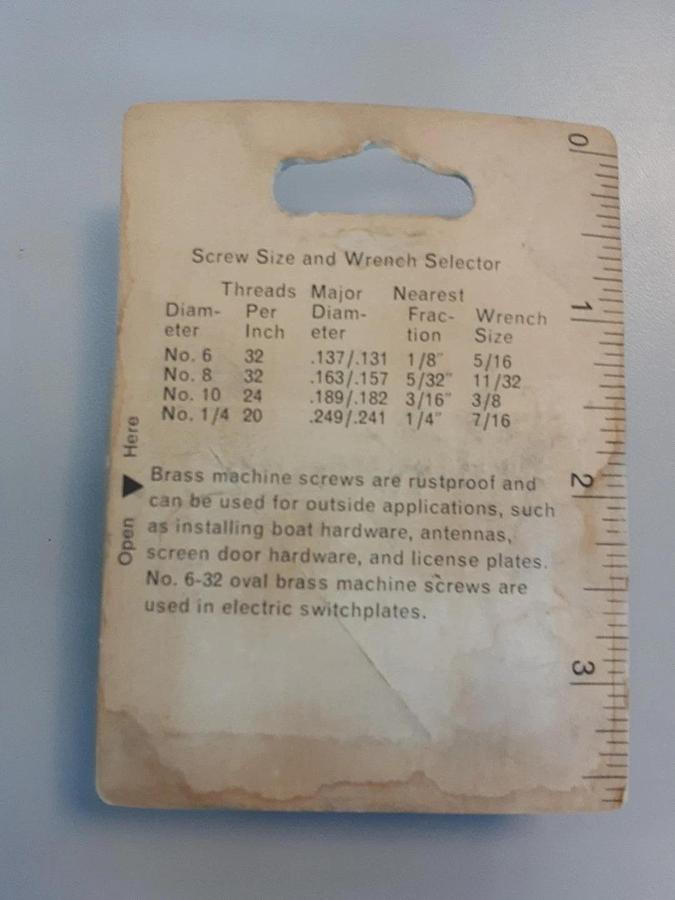 Screw Size and Wrench Selector
Threads Major Nearest
Diam- Per Diam- Frac- Wrench
eter Inch eter tion Size
No. 6 32 .137/.131 1/8" 5/16
No. 8 32 .163/.157 5/32" 11/32
No. 10 24 .189/.182 3/16" 3/8
No. 1/4 20 .249/.241 1/4" 7/16
Brass machine screws are rustproof and
can be used for outside applications, such
as installing boat hardware, antennas,
screen door hardware, and license plates.
No. 6-32 oval brass machine screws are
used in electric switchplates.
Open ▶ Here
0 1 2 3